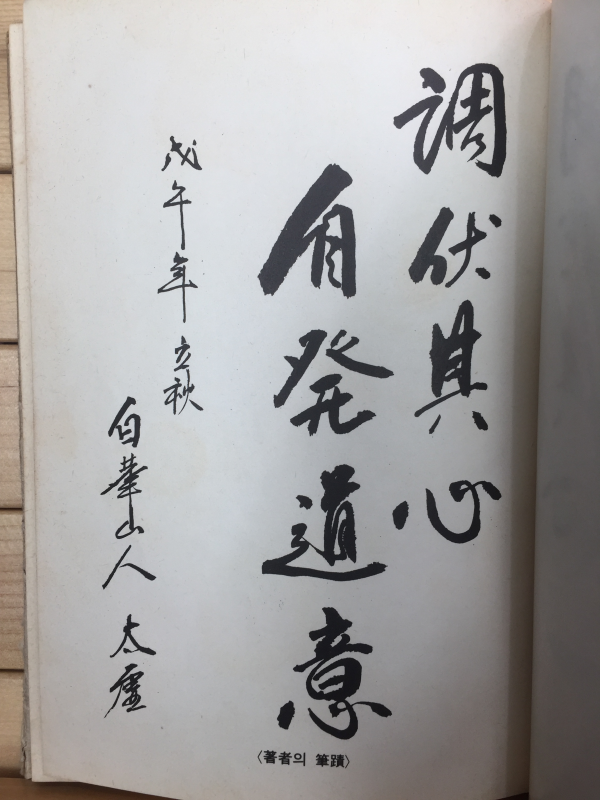 调伏其心
自発道意
戊午年 立秋
白華山人 太虛
〈著者의 筆蹟〉